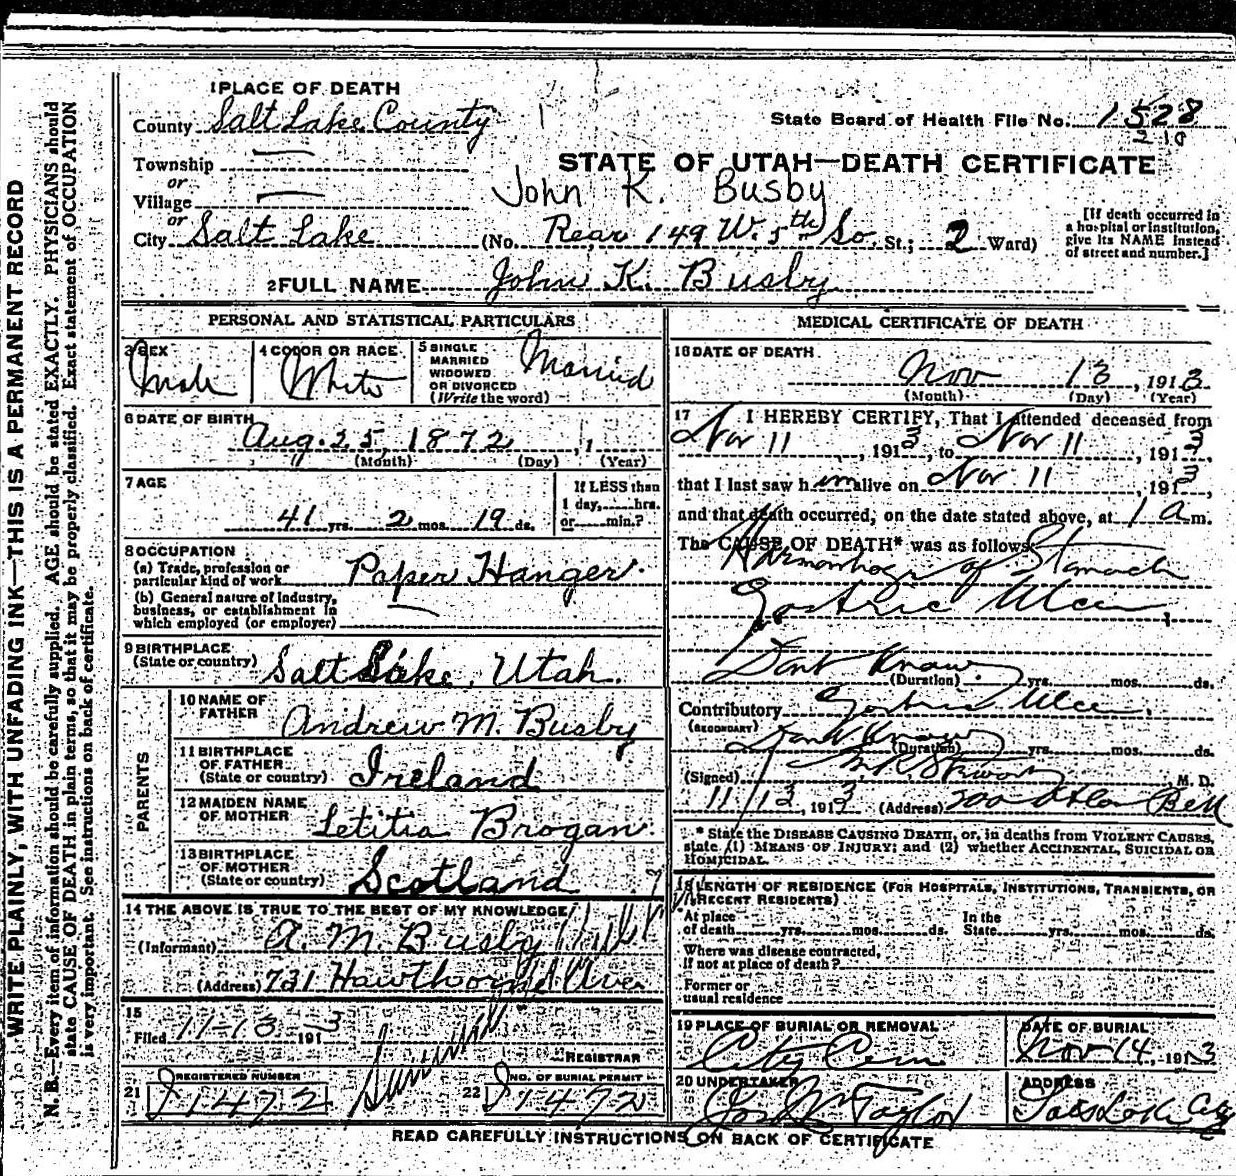 WRITE PLAINLY, WITH UNFADING INK—THIS IS A PERMANENT RECORD
N. B.—Every item of information should be carefully supplied. AGE should be stated EXACTLY. PHYSICIANS should
state CAUSE OF DEATH in plain terms, so that it may be properly classified. Exact statement of OCCUPATION
is very important. See instructions on back of certificate.
1 PLACE OF DEATH
County Salt Lake County
State Board of Health File No. 1528
210
Township —
STATE OF UTAH—DEATH CERTIFICATE
or
John K. Busby
Village —
or
City Salt Lake (No. Rear 149 W. 5th So. St.; 2 Ward)
[If death occurred in
a hospital or institution,
give its NAME instead
of street and number.]
2 FULL NAME John K. Busby
PERSONAL AND STATISTICAL PARTICULARS
3 SEX
Male
4 COLOR OR RACE
White
5 SINGLE
MARRIED
WIDOWED
OR DIVORCED
(Write the word)
Married
6 DATE OF BIRTH
Aug. 25, 1872, 1
(Month) (Day) (Year)
7 AGE
41 yrs. 2 mos. 19 ds.
If LESS than
1 day, hrs.
or min.?
8 OCCUPATION
(a) Trade, profession or
particular kind of work Paper Hanger.
(b) General nature of industry,
business, or establishment in
which employed (or employer) —
9 BIRTHPLACE
(State or country) Salt Lake, Utah.
PARENTS
10 NAME OF
FATHER Andrew M. Busby
11 BIRTHPLACE
OF FATHER
(State or country) Ireland
12 MAIDEN NAME
OF MOTHER Letitia Brogan.
13 BIRTHPLACE
OF MOTHER
(State or country) Scotland
14 THE ABOVE IS TRUE TO THE BEST OF MY KNOWLEDGE
(Informant) A. M. Busby
(Address) 731 Hawthorne Ave
15
Filed 11-13-1913
REGISTRAR
21 REGISTERED NUMBER
J1472
22 NO. OF BURIAL PERMIT
J1472
MEDICAL CERTIFICATE OF DEATH
16 DATE OF DEATH
Nov 13, 1913
(Month) (Day) (Year)
17 I HEREBY CERTIFY, That I attended deceased from
Nov 11, 1913, to Nov 11, 1913,
that I last saw him alive on Nov 11, 1913,
and that death occurred, on the date stated above, at 1 a m.
The CAUSE OF DEATH* was as follows:
Haemorrhage of Stomach
Gastric Ulcer
Dont Know
(Duration) yrs. mos. ds.
Contributory Gastric Ulcer.
(SECONDARY)
Dont Know
(Duration) yrs. mos. ds.
(Signed) M. D.
11/13, 1913 (Address) 200 Atlas Bldg
* State the DISEASE CAUSING DEATH, or, in deaths from VIOLENT CAUSES,
state (1) MEANS OF INJURY; and (2) whether ACCIDENTAL, SUICIDAL OR
HOMICIDAL.
18 LENGTH OF RESIDENCE (FOR HOSPITALS, INSTITUTIONS, TRANSIENTS, OR
RECENT RESIDENTS)
At place
of death yrs. mos. ds.
In the
State yrs. mos. ds.
Where was disease contracted,
if not at place of death?
Former or
usual residence
19 PLACE OF BURIAL OR REMOVAL
City Cem
DATE OF BURIAL
Nov 14, 1913
20 UNDERTAKER
Jos Wm Taylor
ADDRESS
Salt Lake City
READ CAREFULLY INSTRUCTIONS ON BACK OF CERTIFICATE